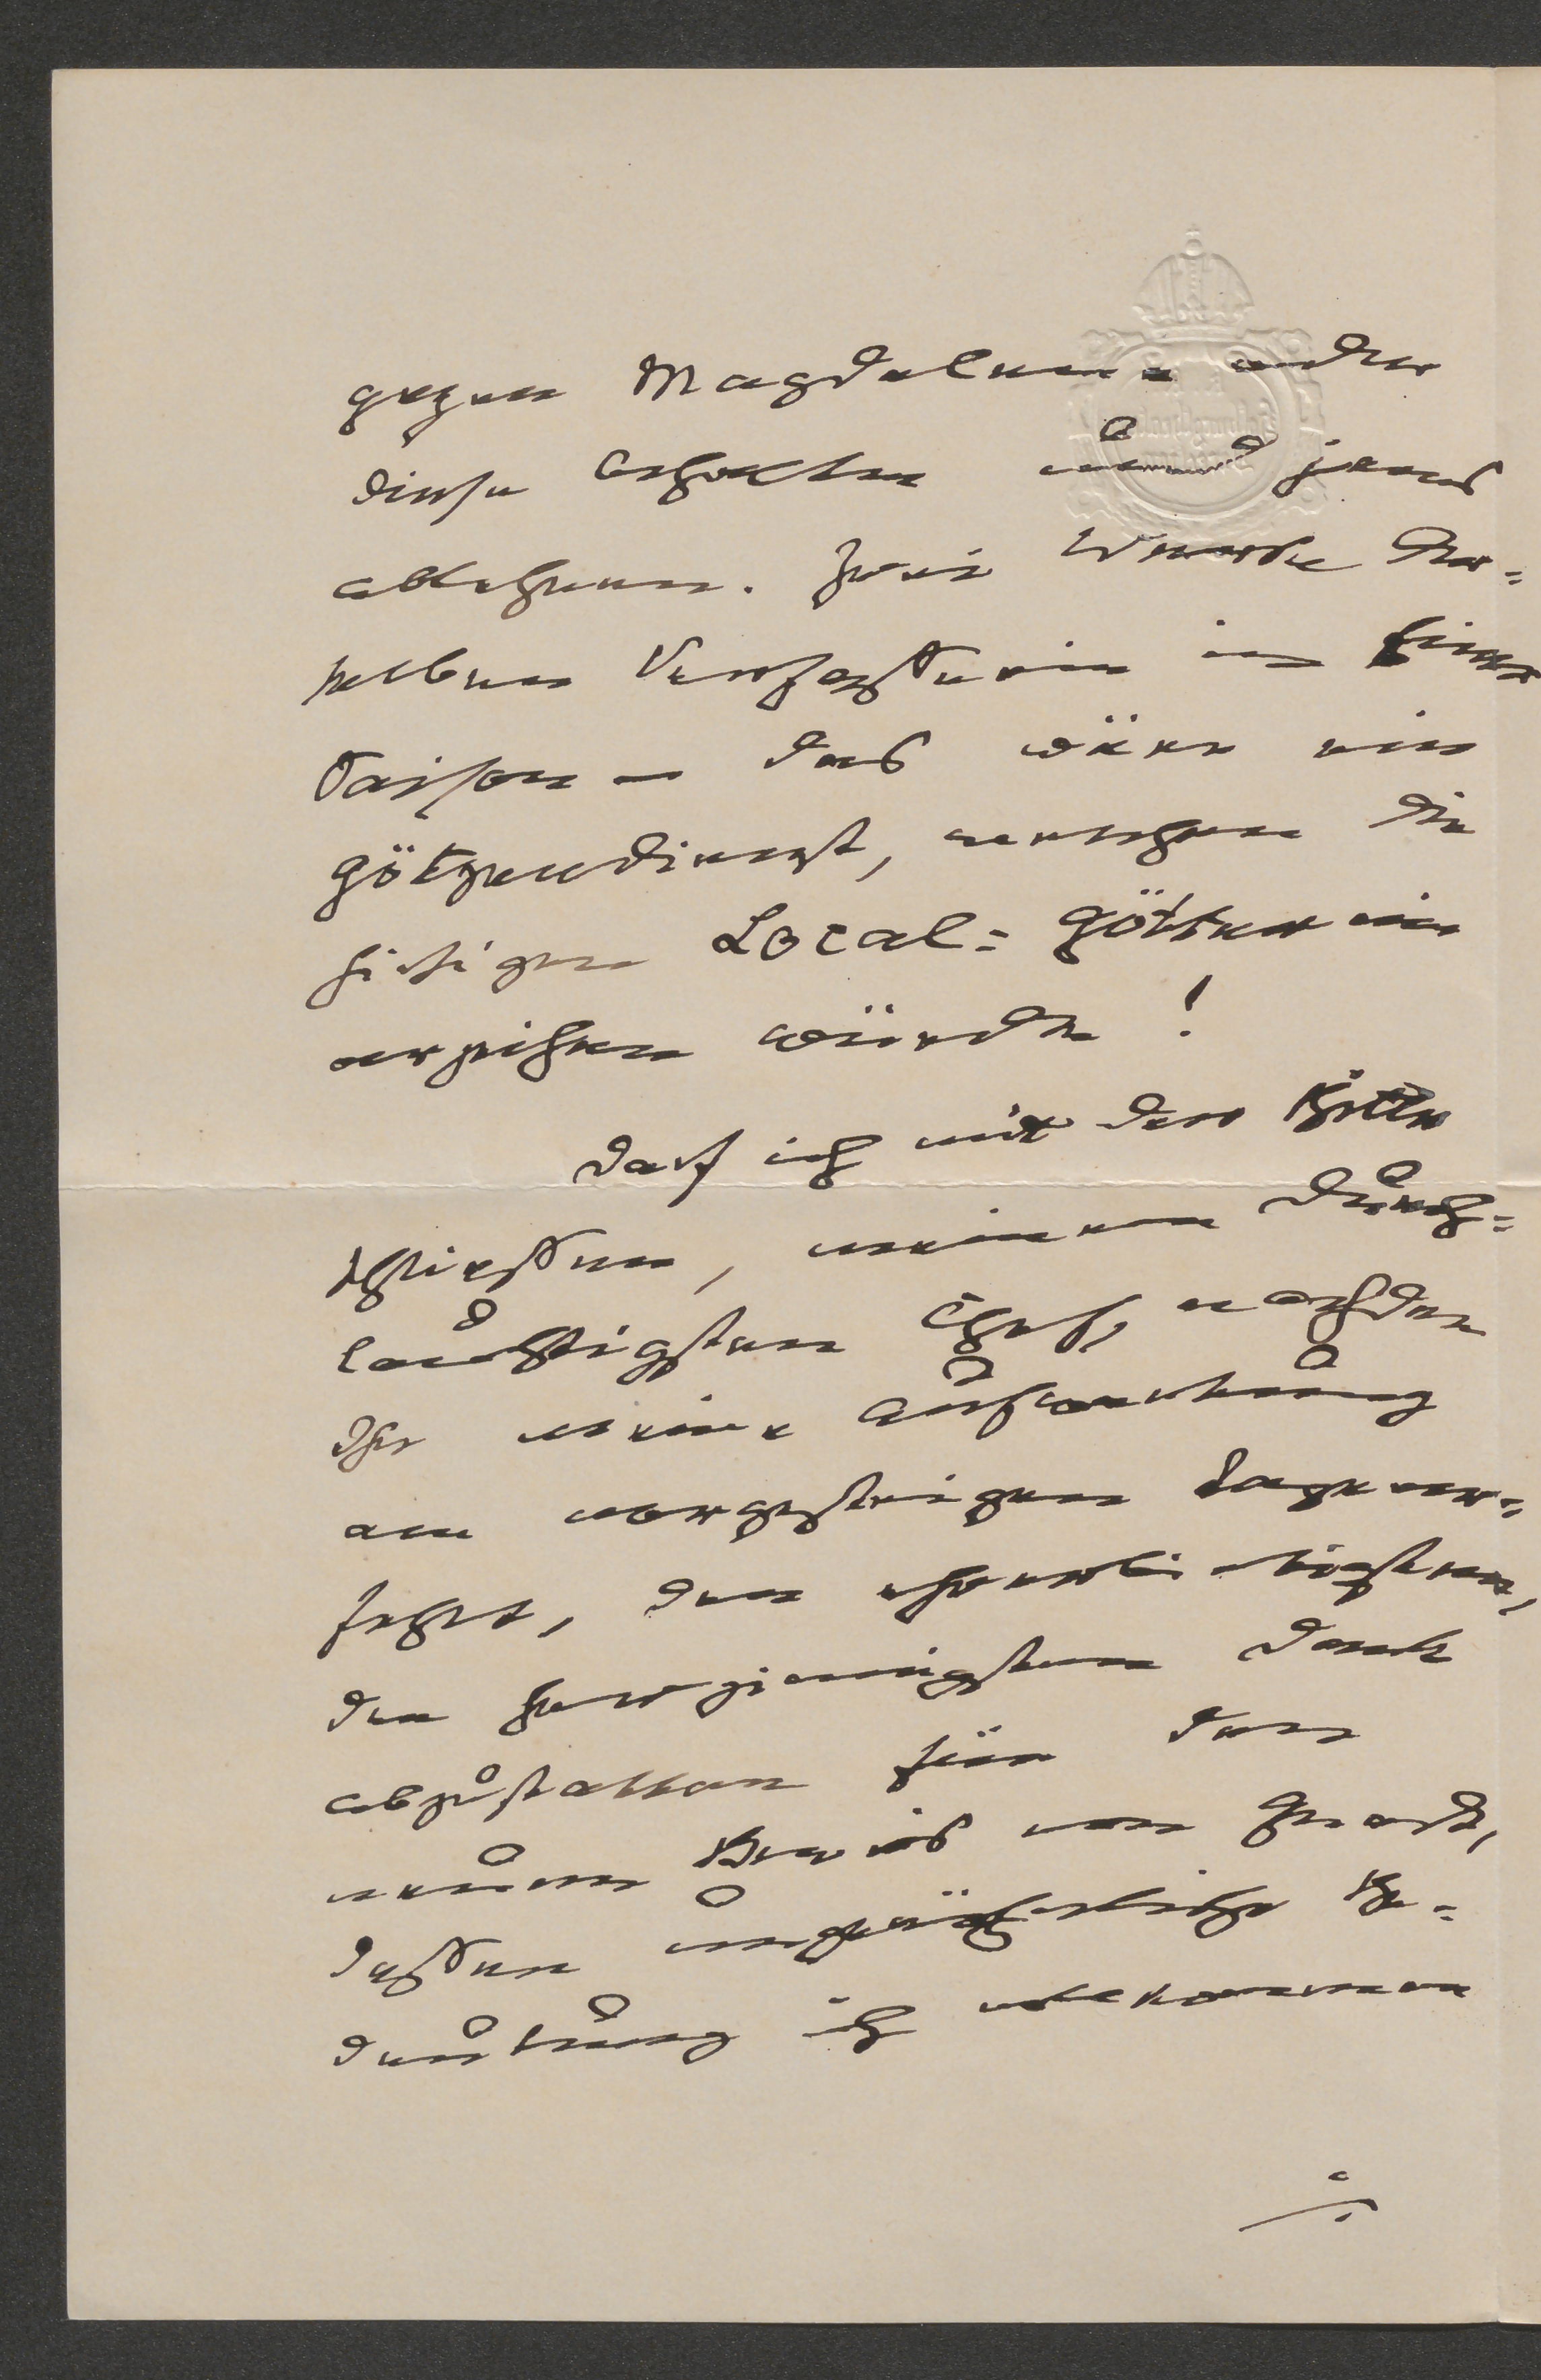 gegen Magdalena oder
diese behalten und jenes
ablehnen. Zwei Werke der=
selben Verfasserin in Einer
Saison – das wäre ein
Götzendienst, welchen die
hiesigen Local=Götter nie
verzeihen würden!
Darf ich mit der Bitte
schließen, meinem Durch=
lauchtigsten Chef, nachdem
Ihr meine Aufwartung
am vorgestrigen Tage ver=
fehlt, den ehrerbietigsten,
den herzinnigsten Dank
abzustatten für den
neuen Beweis von Huld,
dessen unglückliche Be=
deutung ich vollkommen
./.